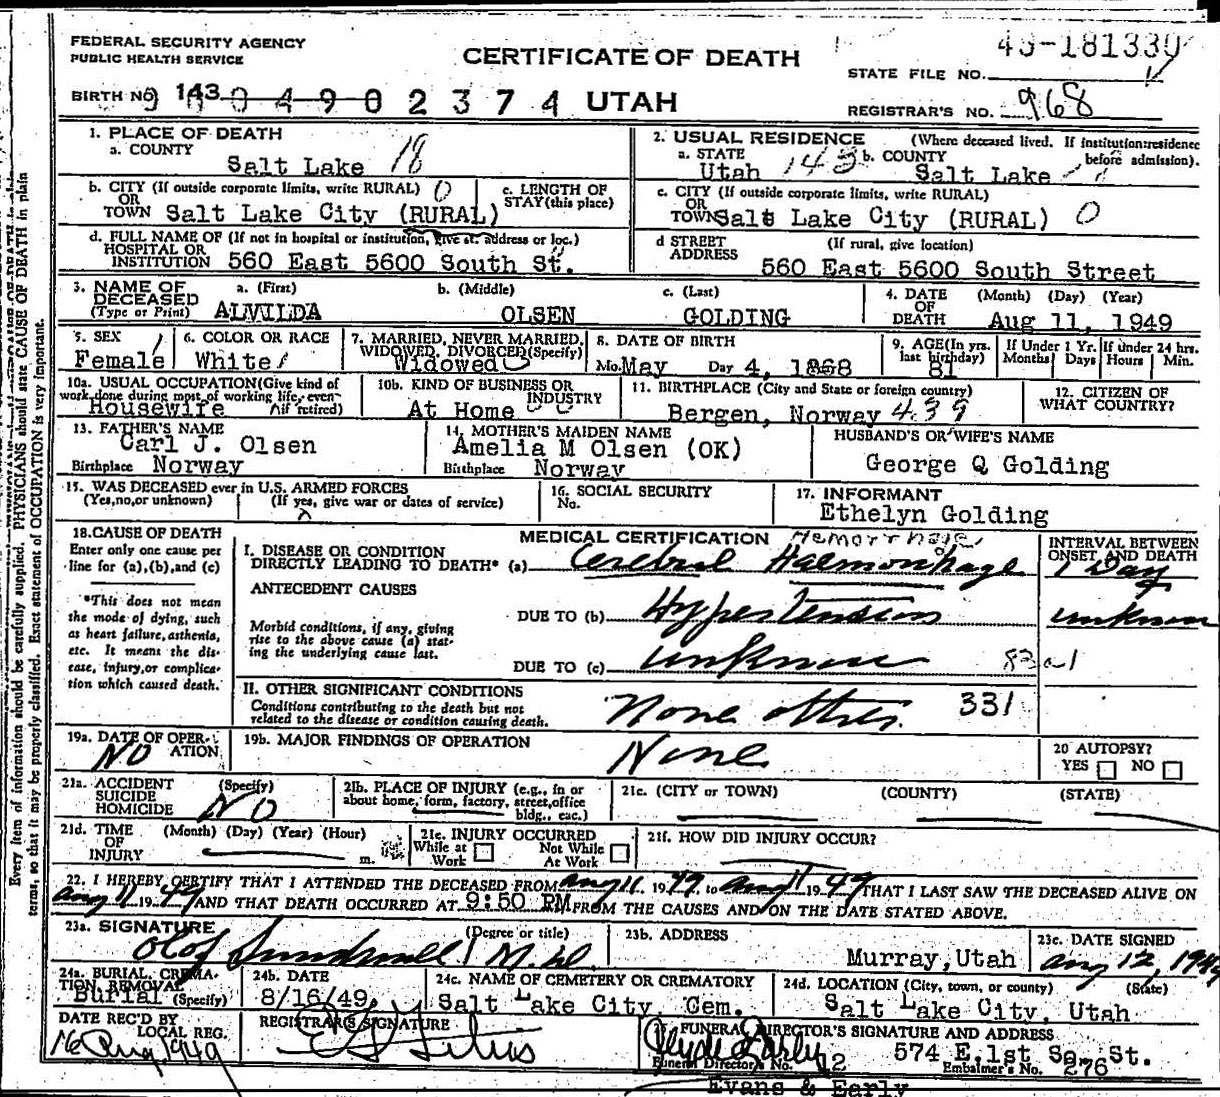 FEDERAL SECURITY AGENCY
PUBLIC HEALTH SERVICE
CERTIFICATE OF DEATH
STATE FILE NO.
BIRTH NO. 143 0 4 9 0 2 3 7 4 UTAH
REGISTRAR'S NO. 968
1. PLACE OF DEATH
a. COUNTY
Salt Lake 18
2. USUAL RESIDENCE (Where deceased lived. If institution: residence before admission).
a. STATE Utah 143 b. COUNTY Salt Lake
b. CITY (If outside corporate limits, write RURAL) 0
OR
TOWN Salt Lake City (RURAL)
c. LENGTH OF STAY (this place)
c. CITY (If outside corporate limits, write RURAL)
OR
TOWN Salt Lake City (RURAL) 0
d. FULL NAME OF (If not in hospital or institution, give st. address or loc.)
HOSPITAL OR
INSTITUTION 560 East 5600 South St.
d STREET ADDRESS (If rural, give location)
560 East 5600 South Street
3. NAME OF DECEASED (Type or Print)
a. (First) b. (Middle) c. (Last)
ALVILDA OLSEN GOLDING
4. DATE OF DEATH (Month) (Day) (Year)
Aug 11, 1949
5. SEX
Female
6. COLOR OR RACE
White
7. MARRIED, NEVER MARRIED, WIDOWED, DIVORCED (Specify)
Widowed
8. DATE OF BIRTH
Mo. May Day 4, 1868
9. AGE (In yrs. last birthday)
81
If Under 1 Yr. Months Days
If under 24 hrs. Hours Min.
10a. USUAL OCCUPATION (Give kind of work done during most of working life, even if retired)
Housewife
10b. KIND OF BUSINESS OR INDUSTRY
At Home
11. BIRTHPLACE (City and State or foreign country)
Bergen, Norway 439
12. CITIZEN OF WHAT COUNTRY?
13. FATHER'S NAME
Carl J. Olsen
Birthplace Norway
14. MOTHER'S MAIDEN NAME
Amelia M Olsen (OK)
Birthplace Norway
HUSBAND'S OR WIFE'S NAME
George Q Golding
15. WAS DECEASED ever in U.S. ARMED FORCES
(Yes, no, or unknown) (If yes, give war or dates of service)
16. SOCIAL SECURITY No.
17. INFORMANT
Ethelyn Golding
18. CAUSE OF DEATH
Enter only one cause per line for (a), (b), and (c)
*This does not mean the mode of dying, such as heart failure, asthenia, etc. It means the disease, injury, or complication which caused death.
MEDICAL CERTIFICATION Hemorrhage
I. DISEASE OR CONDITION DIRECTLY LEADING TO DEATH* (a) Cerebral Haemorrhage
INTERVAL BETWEEN ONSET AND DEATH
1 Day
ANTECEDENT CAUSES
Morbid conditions, if any, giving rise to the above cause (a) stating the underlying cause last.
DUE TO (b) Hypertension unknown
DUE TO (c) unknown 83a1
II. OTHER SIGNIFICANT CONDITIONS
Conditions contributing to the death but not related to the disease or condition causing death.
None other 331
19a. DATE OF OPERATION
NO
19b. MAJOR FINDINGS OF OPERATION
None
20 AUTOPSY?
YES NO
21a. ACCIDENT SUICIDE HOMICIDE (Specify)
NO
21b. PLACE OF INJURY (e.g., in or about home, form, factory, street, office bldg., eac.)
21c. (CITY or TOWN) (COUNTY) (STATE)
21d. TIME OF INJURY (Month) (Day) (Year) (Hour) m.
21e. INJURY OCCURRED
While at Work Not While At Work
21f. HOW DID INJURY OCCUR?
22. I HEREBY CERTIFY THAT I ATTENDED THE DECEASED FROM Aug 11 1949 to Aug 11 1949 THAT I LAST SAW THE DECEASED ALIVE ON
Aug 11 1949 AND THAT DEATH OCCURRED AT 9:50 PM FROM THE CAUSES AND ON THE DATE STATED ABOVE.
23a. SIGNATURE (Degree or title)
Olof Sundwall M.D.
23b. ADDRESS
Murray, Utah
23c. DATE SIGNED
Aug 12, 1949
24a. BURIAL, CREMATION, REMOVAL (Specify)
Burial
24b. DATE
8/16/49
24c. NAME OF CEMETERY OR CREMATORY
Salt Lake City Cem.
24d. LOCATION (City, town, or county) (State)
Salt Lake City, Utah
DATE REC'D BY LOCAL REG.
16 Aug 1949
REGISTRAR'S SIGNATURE
25. FUNERAL DIRECTOR'S SIGNATURE AND ADDRESS
574 E. 1st So. St.
Funeral Director's No. 12
Embalmer's No. 276
Evans & Early
Every item of information should be carefully supplied. PHYSICIANS should state CAUSE OF DEATH in plain
terms, so that it may be properly classified. Exact statement of OCCUPATION is very important.